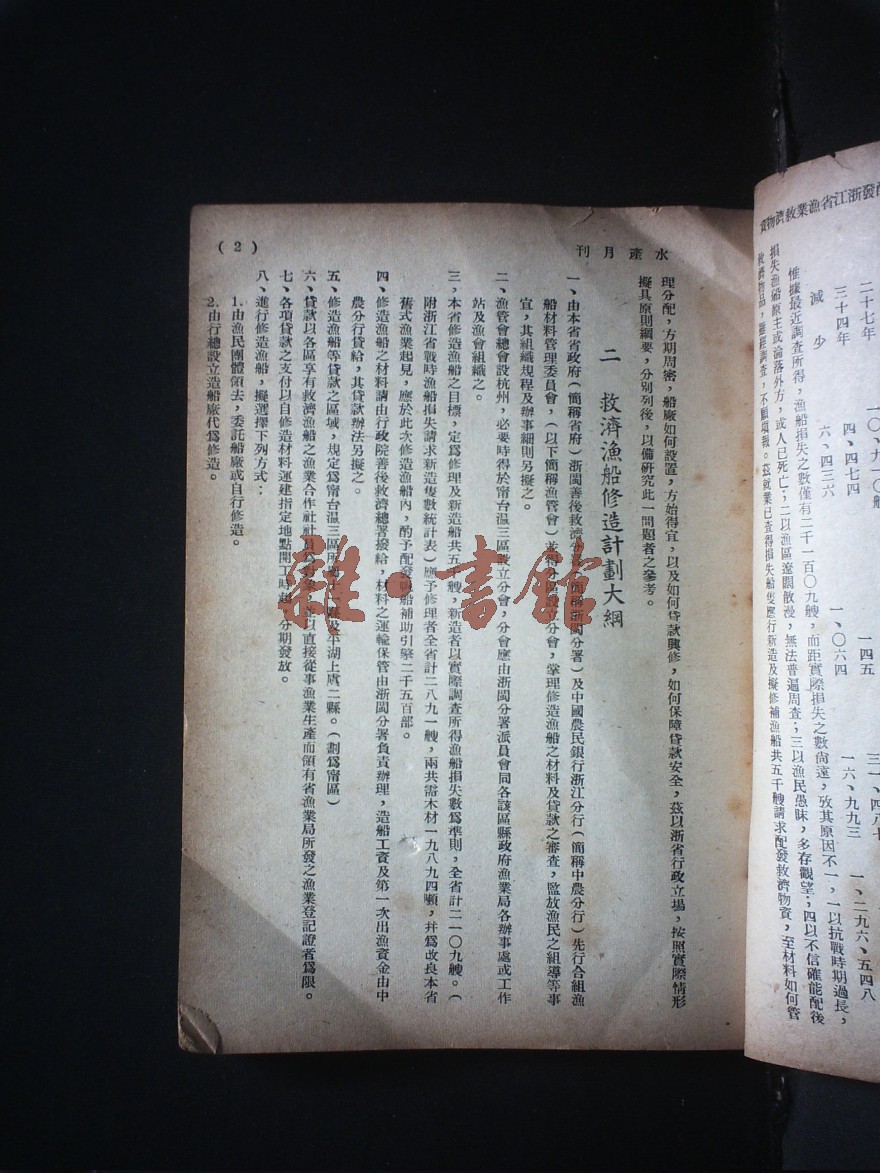 配發浙江省漁業救濟物資
二十七年 一〇、九一〇艘 一四五 三一、四八七
三十四年 四、四七四 一、〇六四 一六、九九三
減少 六、四三六 一、二九六、五四八
惟據最近調查所得，漁船損失之數僅有二千一百〇九艘，而距實際損失之數尚遠，攷其原因不一，一以抗戰時期過長，
損失漁船原主或淪落外方，或人已死亡；二以漁區遼闊散漫，無法普遍周查；三以漁民愚昧，多存觀望；四以不信確能配後
救濟物品，雖經調查，不願填報。茲就業已查得損失船隻應行新造及擬修補漁船共五千艘請求配發救濟物資，至材料如何管
水產月刊
(2)
理分配，方期周密，船廠如何設置，方始得宜，以及如何貸款興修，如何保障貸款安全，茲以浙省行政立場，按照實際情形
擬具原則綱要，分別列後，以備研究此一問題者之參考。
二 救濟漁船修造計劃大綱
一、由本省省政府（簡稱省府）浙閩善後救濟分署（簡稱浙閩分署）及中國農民銀行浙江分行（簡稱中農分行）先行合組漁
船材料管理委員會，（以下簡稱漁管會）並得分區設立分會，掌理修造漁船之材料及貸款之審查，監放漁民之組導等事
宜，其組織規程及辦事細則另擬之。
二、漁管會總會設杭州，必要時得於甯台温三區設立分會，分會應由浙閩分署派員會同各該區縣政府漁業局各辦事處或工作
站及漁會組織之。
三，本省修造漁船之目標，定爲修理及新造船共五千艘，新造者以實際調查所得漁船損失數爲準則，全省計二一〇九艘。（
附浙江省戰時漁船損失請求新造隻數統計表）應予修理者全省計二八九一艘，兩共需木材一九八九四噸，幷爲改良本省
舊式漁業起見，應於此次修造漁船內，酌予配發 船補助引擎二千五百部。
四、修造漁船之材料請由行政院善後救濟總署撥給，材料之運輸保管由浙閩分署負責辦理，造船工資及第一次出漁資金由中
農分行貸給，其貸款辦法另擬之。
五、修造漁船等貸款之區域，規定爲甯台温三區所 及平湖上虞二縣。（劃爲甯區）
六、貸款以各區享有救濟漁船之漁業合作社社員 以直接從事漁業生產而領有省漁業局所發之漁業登記證者爲限。
七、各項貸款之支付以自修造材料運建指定地點開工時起，分期發放。
八、進行修造漁船，擬選擇下列方式：
1.由漁民團體領去，委託船廠或自行修造。
2.由行總設立造船廠代爲修造。
雜·書館